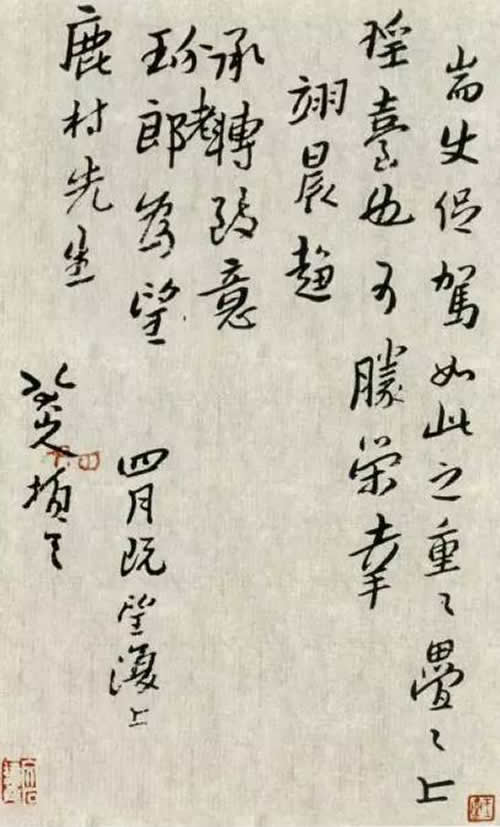 耑使促駕如此之重〻疊〻上
瑤臺也可勝榮幸
翊晨趨
承轉致意
郎為望
四月既望復上
鹿村先生
頓〻